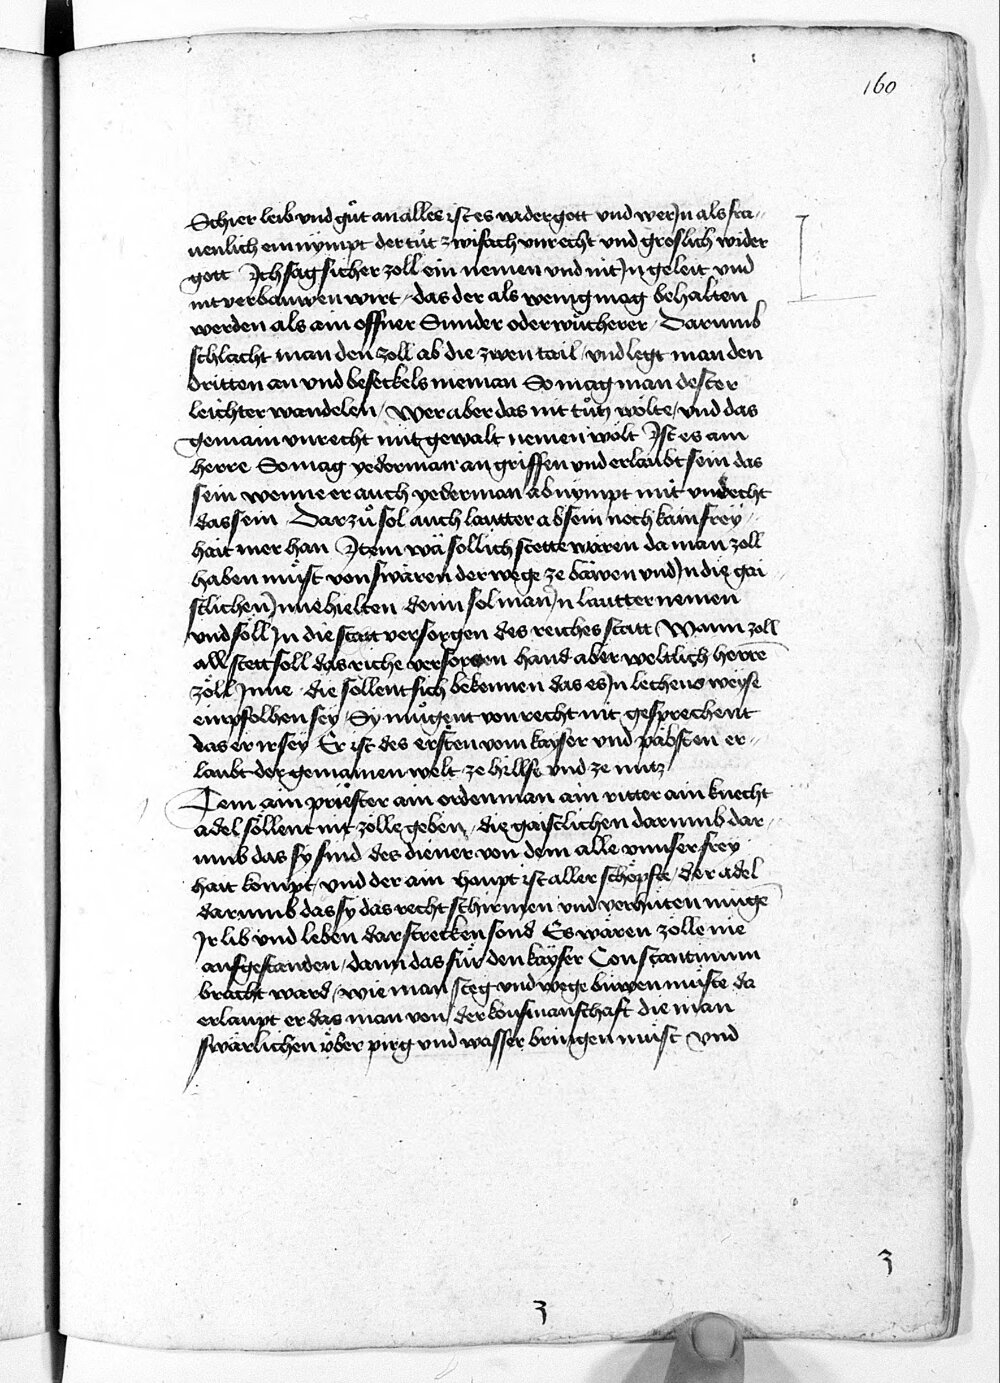 160
Schier leib vnd gůt an alles ist es wider gott vnd wer Jn als fra-
uenlich ein nympt der tůt zwifach vnrecht vnd groslich wider
gott Jch sag sicher zoll ein nemen vnd nit Jn geleit vnd
nit verbauwen wirt / das der als wenig mag behalten
werden als ain offner Sunder oder wůcherer / Darumb
schlacht man den zoll ab die zwen tail / vnd legt man den
dritten an vnd beseckels nieman So mag man dester
leichter wandelen / wer aber das nit tůn wölte / vnd das
gemain vnrecht mit gewalt nemen wölt Jst es ain
herre So mag yederman an griffen vnd erlaubt sein das
sein wenne er auch yederman ab nympt mit vnrecht
das sein Darzů sol auch lautter ab sein noch kain frey
hait mer han Jtem wä sollich stette wären da man zoll
haben můst von swären der wege ze bäwen vnd Jn die gai
stlichen Jnne hielten denn sol man Jn lautter nemen
vnd söll Jn die statt versorgen des reiches statt Wann zoll
all stett soll das riche versorgen hand aber weltlich herre
zöll Jnne die söllent sich bekennen das es Jn lechens weyse
empfolhen sey / Sy mügent von recht nit gesprechent
das er ir sey Er ist des ersten vom kayser vnd päbsten er-
laubt der gemainen welt ze hillff vnd ze nutz
Jtem ain priester ain ordenman ain ritter ain knecht
adel söllent nit zolle geben / die gaistlichen darumb dar-
umb das sy sind des diener von dem alle vnnser frey
hait kompt / vnd der ain haupt ist aller schöpffe / der adel
darumb das sy das recht schirmen vnd verhüten müge
Jr lib vnd leben dar strecken sond Es wären zölle nie
aufgestanden / dann das für den kayser Constantinum
bracht ward / wie man steg vnd wege buwen müste da
erlaupt er das man von der koufmanschaft die man
swärlichen über pirg vnd wasser bringen můst vnd
3
3